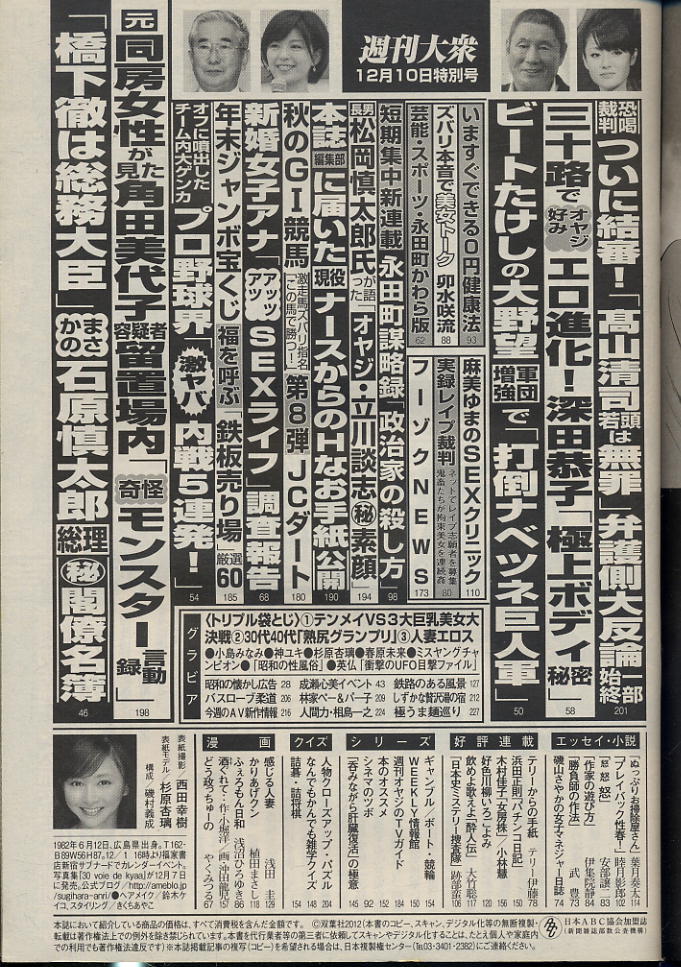 週刊大衆
12月10日特別号
恐喝裁判 ついに結審!「髙山清司若頭は無罪」弁護側大反論一部始終 201
三十路でオヤジ好み エロ進化!深田恭子「極上ボディ」秘密 58
ビートたけしの大野望 軍団増強で「打倒ナベツネ巨人軍」 50
いますぐできる0円健康法 93
ズバリ本音で美女トーク 卯水咲流 88
芸能・スポーツ・永田町かわら版 62
麻美ゆまのSEXクリニック 110
実録レイプ裁判 ネットでレイプ志願者を募集 鬼畜たちが拘束美女を連続姦 80
フーゾクNEWS 173
短期集中新連載 永田町謀略録「政治家の殺し方」 98
長男 松岡慎太郎氏が語った「オヤジ・立川談志㊙素顔」 194
本誌編集部に届いた現役ナースからのHなお手紙公開 190
秋のGI競馬 激走馬ズバリ指名「この馬で勝つ!」第8弾 JCダート 180
新婚女子アナ「アッツアツSEXライフ」調査報告 68
年末ジャンボ宝くじ 福を呼ぶ「鉄板売り場」厳選60 185
オフに噴出したチーム内大ゲンカ プロ野球界「激ヤバ内戦5連発!」 54
元同房女性が見た角田美代子容疑者 留置場内「奇怪モンスター」言動録 198
「橋下徹は総務大臣」まさかの石原慎太郎総理㊙閣僚名簿 46
グラビア
〈トリプル袋とじ〉①テンメイVS3大巨乳美女大
決戦②30代40代「熟尻グランプリ」③人妻エロス
●小島みなみ●神ユキ●杉原杏璃●春原未来●ミスヤングチャ
ンピオン●「昭和の性風俗」●英仏「衝撃のUFO目撃ファイル」
昭和の懐かし広告 28 成瀬心美イベント 43 鉄路のある風景 127
バスローブ柔道 206 林家ペー&パー子 209 しずかな贅沢湯の宿 212
今週のAV新作情報 216 人間力・相島一之 224 極うま麺巡り 227
エッセイ・小説
「ぬっぷりお掃除屋さん」 葉月奏太 114
「プレイバック性春!」 睦月影郎 102
「怒怒怒」 安部譲二 84
「作家の遊び方」 伊集院静 84
「勝負師の作法」 武豊 83
磯山さやかの女子マネージャー日誌 74
好評連載
テリーからの手紙 テリー伊藤 78
浜田正則「パチンコ日記」 156
木村佳子「女房株」/小林慧 150
好色川柳いろごよみ 196
飲めよ歌えよ「酔人伝」 大竹聡 117
「日本史ミステリー捜査隊」 跡部蛮 106
シリーズ
ギャンブル/ボート・競輪 154
WEEKLY情報館
週刊オヤジのTVガイド
本のオススメ
シネマのツボ
「呑みながら肝臓復活」の極意
クイズ
人物クローズアップ・パズル 204
なんでもかんでも雑学クイズ 148
詰碁・詰将棋 154
漫画
感じる人妻 浅田圭
かりあげクン 植田まさし
ふぇろもん日和 浅沼ひろゆき
酒ぐれて・作/小堀洋/画・沖田龍児 151
どう政っちゅーの やくみつる 67
表紙撮影/西田幸樹
表紙モデル/杉原杏璃
構成 磯村義成
1982年6月12日、広島県出身。T162・
B89W56H87。12/1 16時より福家書
店新宿サブナードでカレンダーイベント。
写真集『30 voie de kyaa』が12月7日
に発売。公式ブログ/http://ameblo.jp
/sugihara-anri/●ヘアメイク/鈴木ケ
イコ、スタイリング/きくちあやこ
本誌において紹介している商品の価格は、すべて消費税を含んだ金額です。 Ⓒ双葉社2012〈本書のコピー、スキャン、デジタル化等の無断複製・
転載は著作権法上での例外を除き禁じられています。本書を代行業者等の第三者に依頼してスキャンやデジタル化することは、たとえ個人や家庭内
での利用でも著作権法違反です〉※本誌掲載記事の複写(コピー)を希望される場合は、日本複製権センター(℡03・3401・2382)にご連絡ください。
日本ABC協会加盟誌
(新聞雑誌部数公査機構)